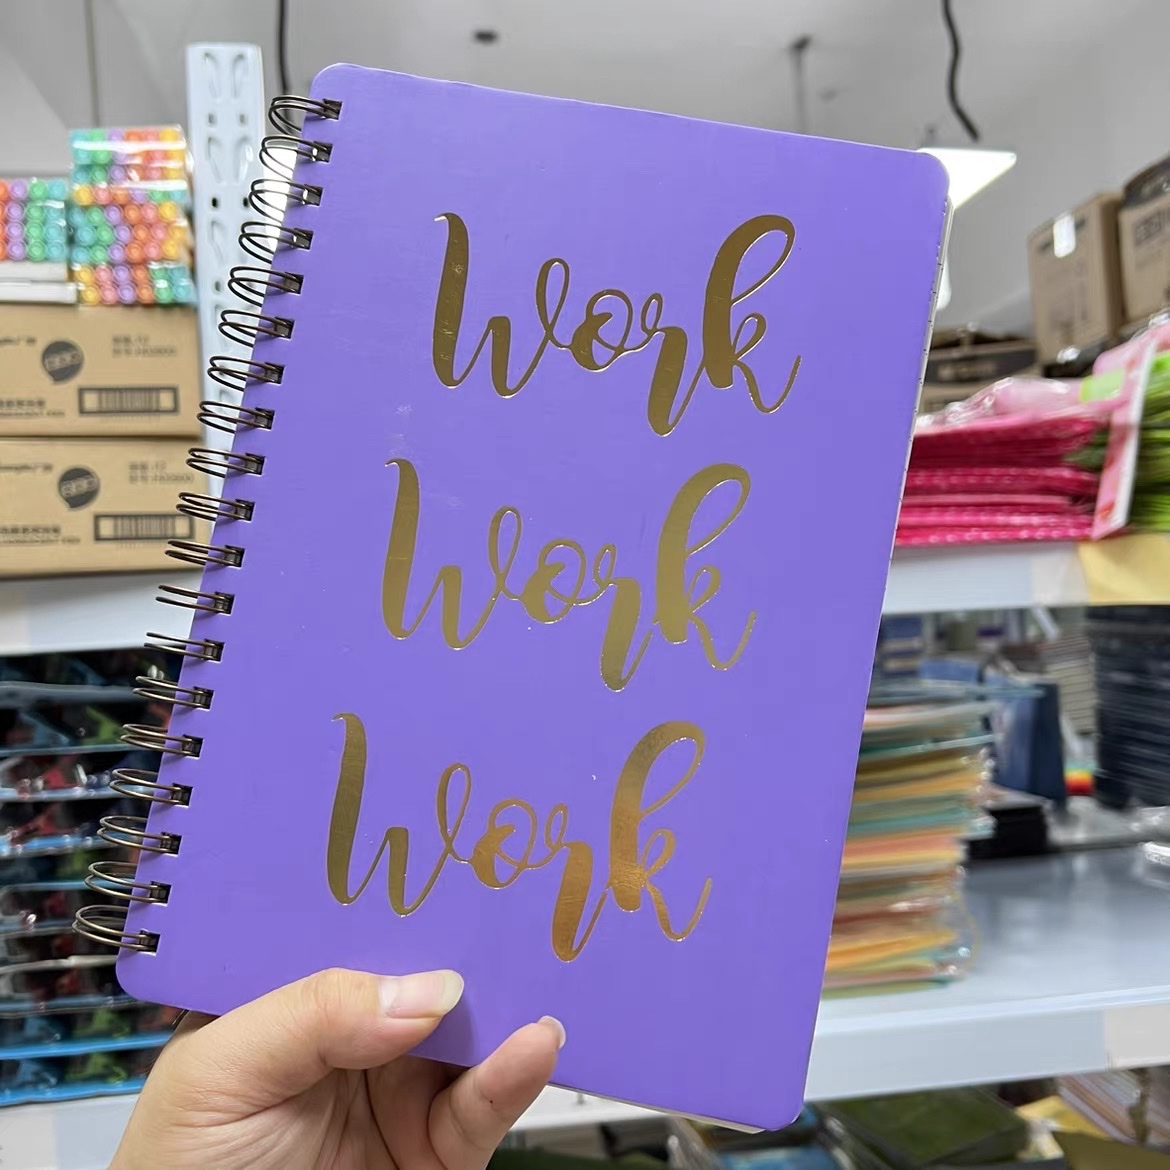 Work
Work
Work